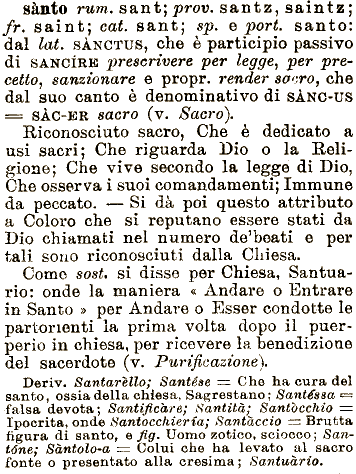 sànto rum. sant; prov. santz, saintz;
fr. saint; cat. sant; sp. e port. santo:
dal lat. SÀNCTUS, che è participio passivo
di SANCÍRE prescrivere per legge, per pre-
cetto, sanzionare e propr. render sacro, che
dal suo canto è denominativo di SÀNC-US
= SÀC-ER sacro (v. Sacro).
Riconosciuto sacro, Che è dedicato a
usi sacri; Che riguarda Dio o la Reli-
gione; Che vive secondo la legge di Dio,
Che osserva i suoi comandamenti; Immune
da peccato. — Si dà poi questo attributo
a Coloro che si reputano essere stati da
Dio chiamati nel numero de'beati e per
tali sono riconosciuti dalla Chiesa.
Come sost. si disse per Chiesa, Santua-
rio: onde la maniera « Andare o Entrare
in Santo » per Andare o Esser condotte le
partorienti la prima volta dopo il puer-
perio in chiesa, per ricevere la benedizione
del sacerdote (v. Purificazione).
Deriv. Santarèllo; Santése = Che ha cura del
santo, ossia della chiesa, Sagrestano; Santéssa =
falsa devota; Santificàre; Santità; Santòcchio =
Ipocrita, onde Santocchierìa; Santàccio = Brutta
figura di santo, e fig. Uomo zotico, sciocco; San-
tóne; Sàntolo-a = Colui che ha levato al sacro
fonte o presentato alla cresima; Santuàrio.